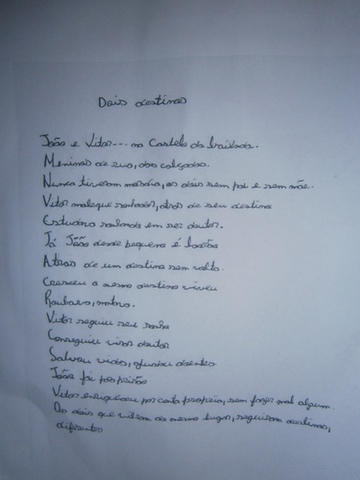 Dois destinos
João e Vitor... no Castelo da
Meninos de rua, das calçadas.
Nunca tiveram morada, os dois sem pai e sem mãe.
Vitor moleque sonhador, atrás de seu destino
Estudava sonhando em ser doutor.
Já João desde pequeno é ladrão
Atras de um destino sem volta.
Cresceu o mesmo destino viveu
Roubava, matava.
Vitor seguiu seu sonho
Conseguiu virar doutor
Salvou vidas, ajudou doentes
João foi pra prisão
Vitor enriqueceu por conta propria, sem fazer mal algum.
Os dois que vieram do mesmo lugar, seguiram destinos,
diferentes